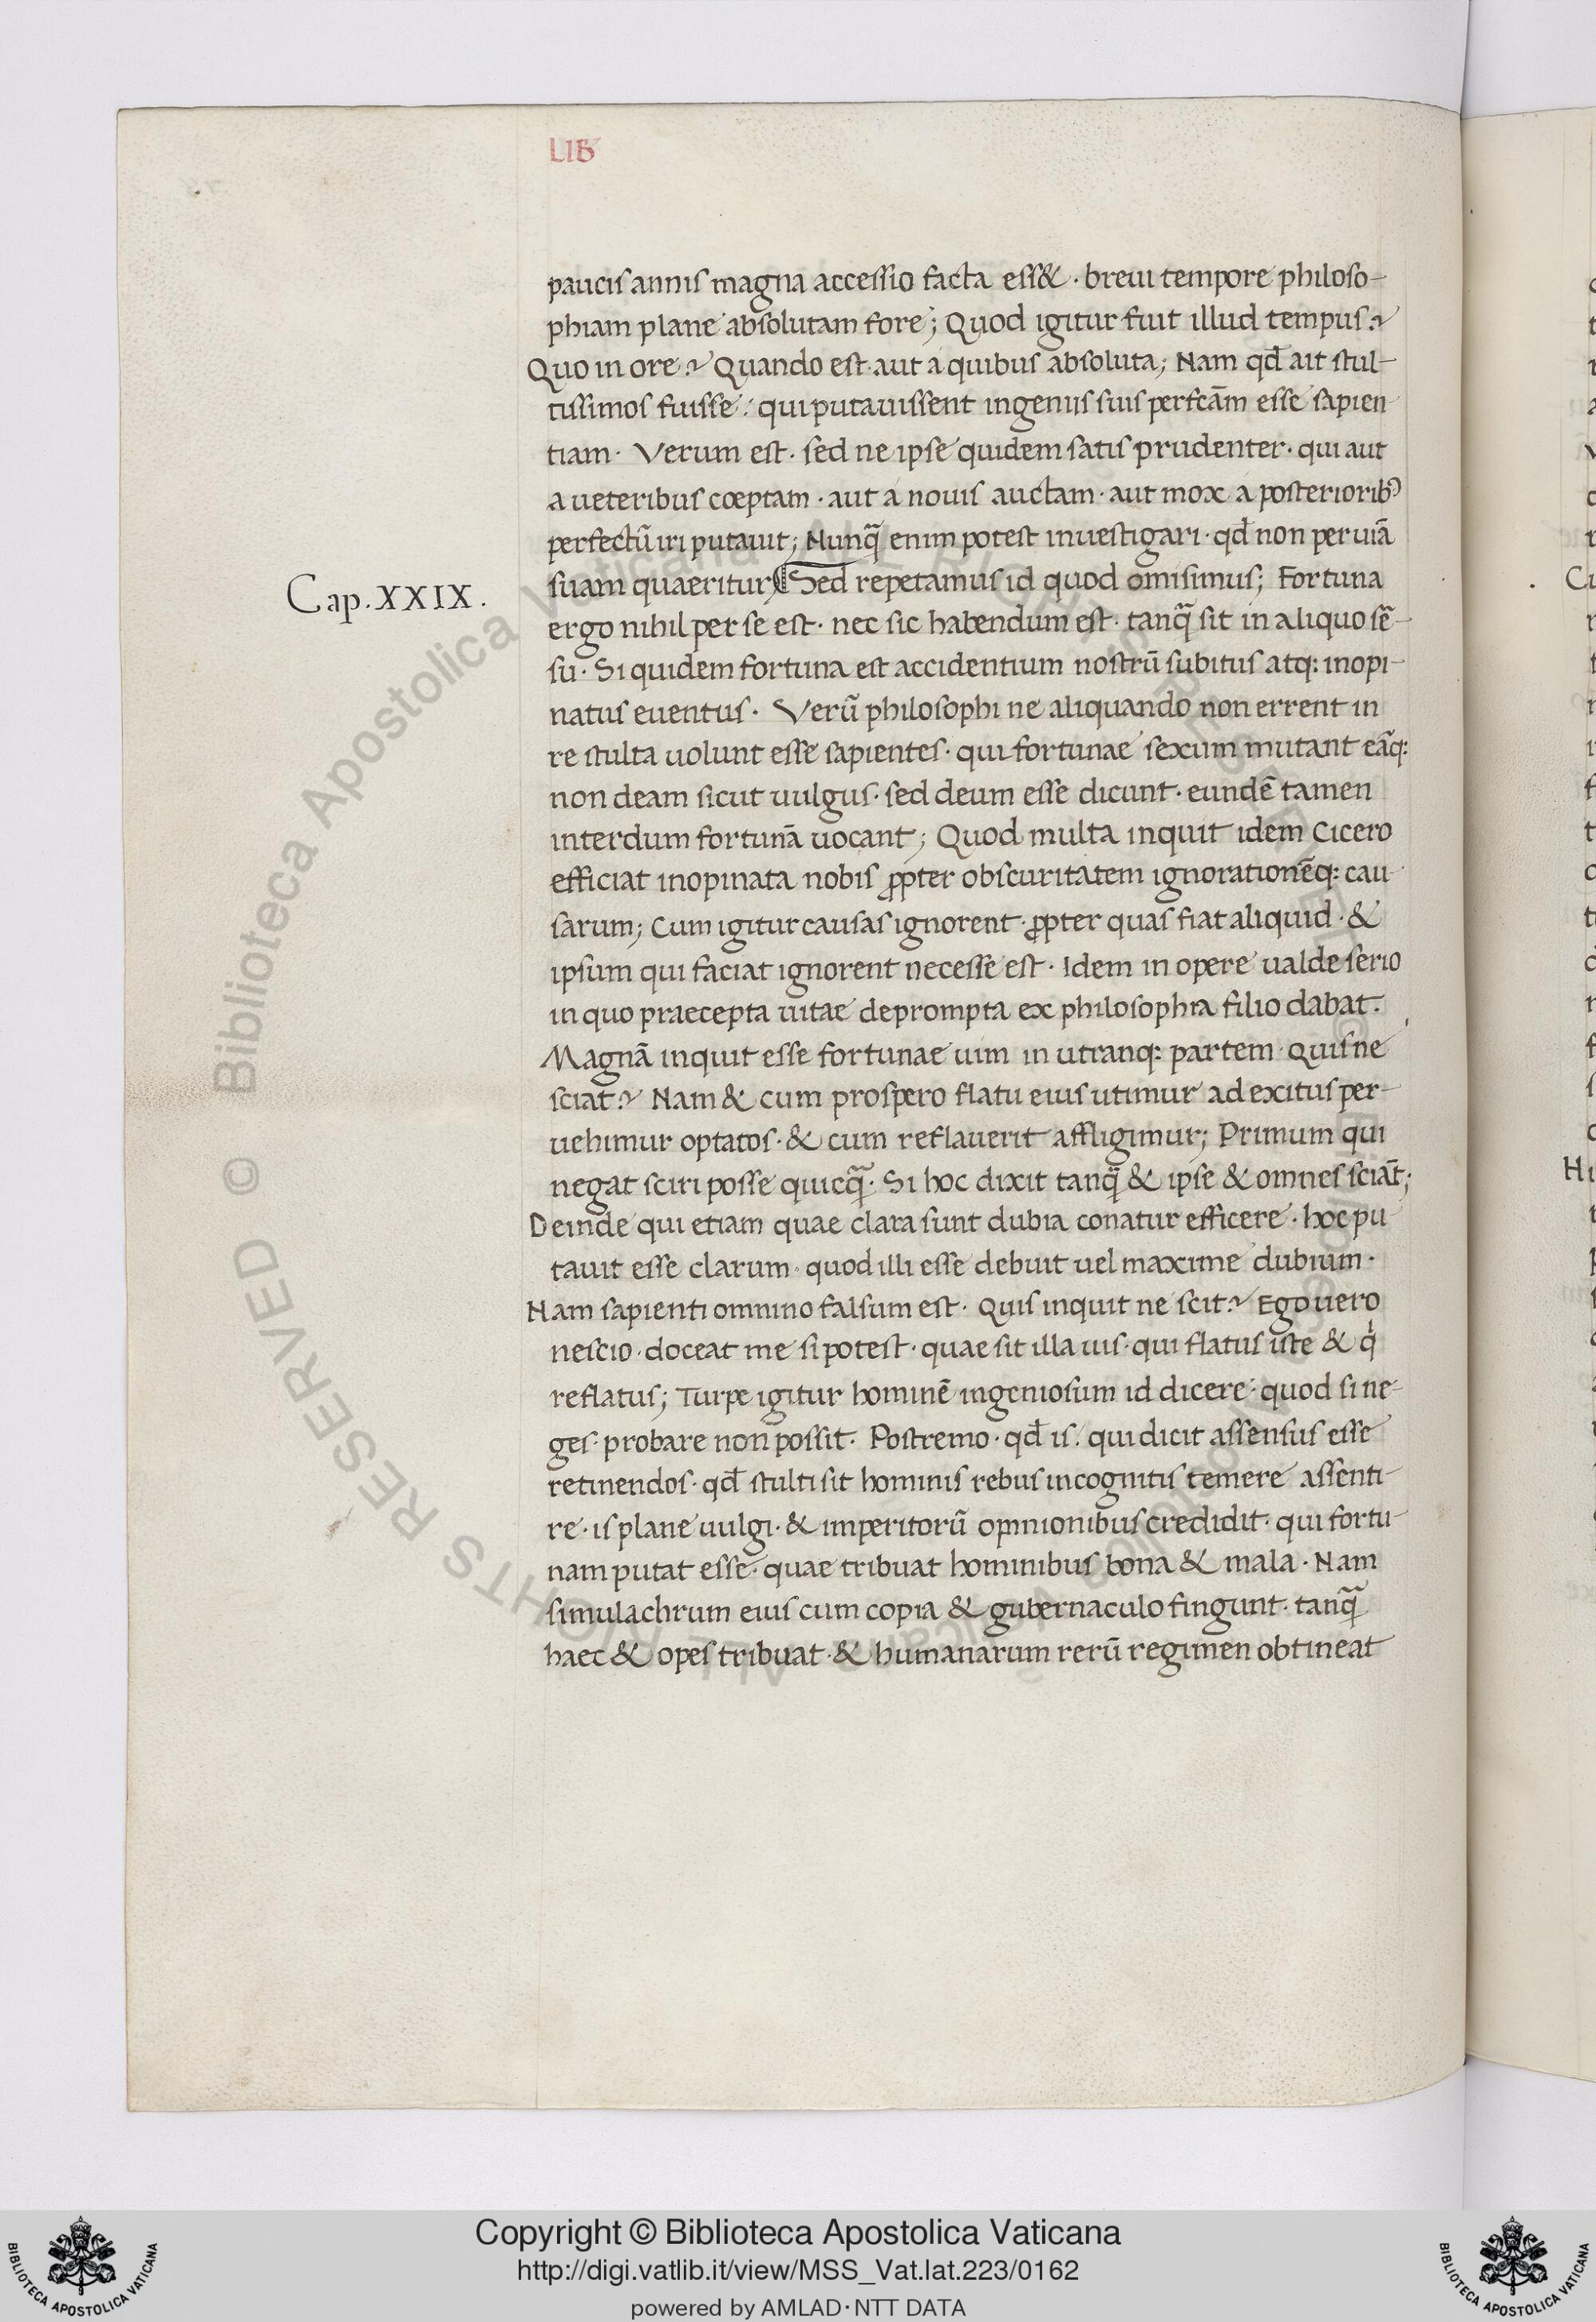 LIB
paucis annis magna accessio facta ess& · breui tempore philoso-
phiam plane absolutam fore; Quod igitur fuit illud tempus?
Quo in ore? Quando est aut a quibus absoluta; Nam qđ ait stul-
tissimos fuisse: qui putauissent ingeniis suis perfcām esse sapien
tiam· Verum est· sed ne ipse quidem satis prudenter· qui aut
a ueteribus cœptam· aut a nouis auctam· aut mox a posteriorib⁹
perfectū iri putauit; Nunq̄ enim potest inuestigari· qđ non per uiā
Cap. XXIX.
suam quaeritur; Sed repetamus id quod omisimus; Fortuna
ergo nihil per se est· nec sic habendum est· tanq̄ sit in aliquo sē-
su· Si quidem fortuna est accidentium nostrū subitus atq: inopi-
natus euentus· Verū philosophi ne aliquando non errent in
re stulta uolunt esse sapientes· qui fortunae sexum mutant eāq:
non deam sicut uulgus· sed deum esse dicunt· eundē tamen
interdum fortunā uocant; Quod multa inquit idem Cicero
efficiat inopinata nobis ꝓpter obscuritatem ignorationēq: cau
sarum; Cum igitur causas ignorent· ꝓpter quas fiat aliquid· &
ipsum qui faciat ignorent necesse est· Idem in opere ualde serio
in quo praecepta uitae deprompta ex philosophia filio dabat·
Magnā inquit esse fortunae uim in utranq: partem· quis ne
sciat? Nam & cum prospero flatu eius utimur ad exitus per-
uehimur optatos· & cum reflauerit affligimur; Primum qui
negat sciri posse quicq̄· Si hoc dixit tanq̄ & ipse & omnes sciāt;
Deinde qui etiam quae clara sunt dubia conatur efficere· hoc pu
tauit esse clarum· quod illi esse debuit uel maxime dubium·
Nam sapienti omnino falsum est· Quis inquit ne scit? Ego uero
nescio· doceat me si potest· quae sit illa uis· qui flatus iste & q̇
reflatus; Turpe igitur hominē ingeniosum id dicere· quod si ne-
ges· probare non possit· Postremo· qđ is· qui dicit assensus esse
retinendos· qđ stulti sit hominis rebus incognitis temere assenti-
re· is plane uulgi· & imperitorū opinionibus credidit· qui fortu-
nam putat esse· quae tribuat hominibus bona & mala· Nam
simulachrum eius cum copia & gubernaculo fingunt· tanq̄
haec & opes tribuat· & humanarum rerū regimen obtineat
Copyright © Biblioteca Apostolica Vaticana
http://digi.vatlib.it/view/MSS_Vat.lat.223/0162
powered by AMLAD·NTT DATA